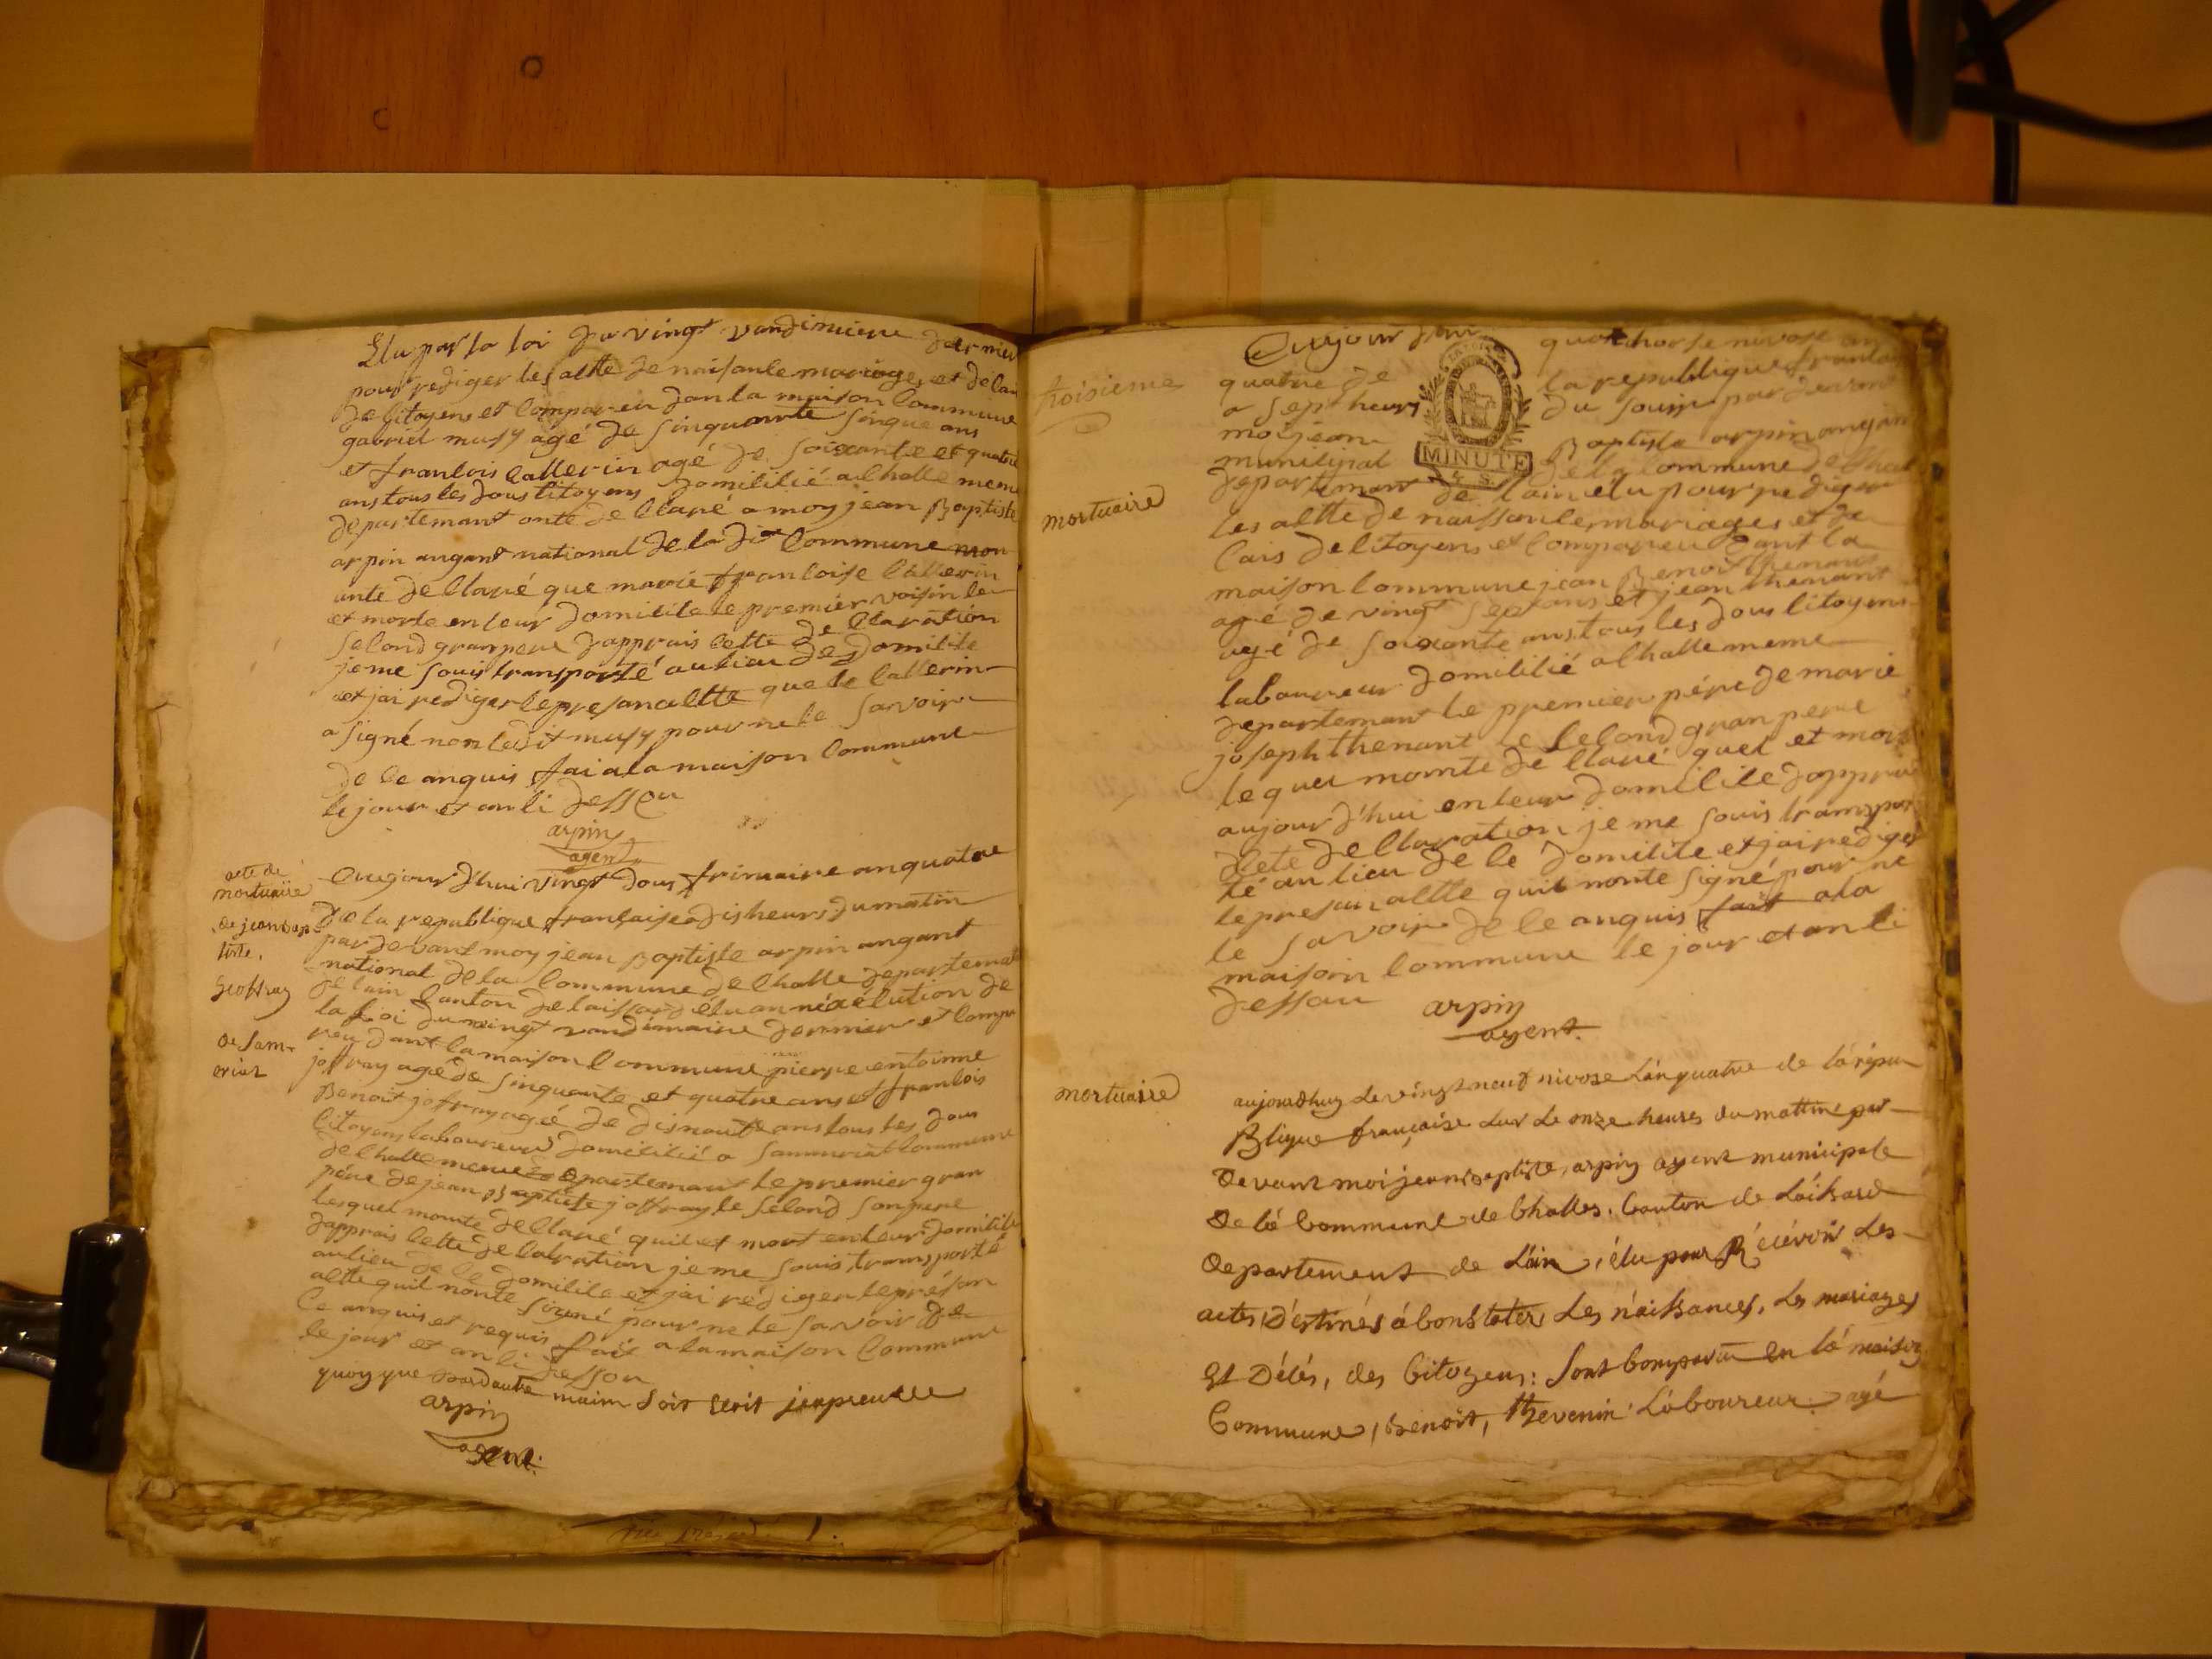 Elu par la loi du vingt vandimiere dernier
pour rediger les altte de naisanle mariages et de lau
de litoyens et lompareu dan la maison lommune
gabriel musy agé de sinquante sinque ans
et franlois lallerin agé de soixante et quatre
ans tous les dous litoyens domililié a lhalle meme
departemant onte de llaré a moy jean Baptiste
arpin angant national de la dit lommune mon
onte de llaré que marie franloise lallerin
et morte en leur domilile le premier voisin le
selond gran pere dapprais lette de llaration
je me souis transporté au lieu de domilile
et jai rediger le presan altte que le lallerin
a signé non ledit musy pour ne le savoir
de le anquis fai a la maison lommune
le jour et an li dessou
arpin
agent
acte de
mortuaire
de jean bap
tiste
Geoffray
de Sam
eriat
Aujour d'hui vingt dous frimaire an quatre
de la republique française a dis heurs du matin
par devant moy jean Baptiste arpin angant
national de la lommune de lhalle departemat
de lain lanton de laissard elu an néxélution de
la loi du vingt vandimaire dernier et lompa
reu dant la maison lommune pierre entoinne
joffray agé de sinquante et quatre ans et franlois
Benoit jofray agé de disneuf ans tous les dous
litoyens laboureurs domililié a Sammuriat lommune
de lhalle meme departemant le premier gran
pére de jean Baptiste joffray le selond son pere
lesquel monte de llaré quil et mort en leur domilile
dapprais lette de lalration je me souis transporté
au lieu de le domilile et jai rédiger le présan
altte quil nonte signé pour ne le savoir de
le anquis et requis fait a la maison lommune
le jour et an li dessou
quoy que par dautre main soit écrit japreuve
arpin
agent.
troisieme
mortuaire
Aujour dhui quathorse nivose an
quatre de la republique franlai
a sept heurs du souir par devant
moi jean Baptiste arpin angan
munilipal de la lommune de lhal
MINUTE
departemant de lain elu pour rediger
les altte de naissanle mariages et de
lais de litoyens et lompareu dant la
maison lommune jean Benoit thenant
agé de vingt sept ans et jean thenant
agé de soixante ans tous les dous litoyens
laboureur domililié a lhalle meme
departemant le premier pére de marie
joseph thenant le selond gran pere
le quel monte de llaré quel et mort
aujour d'hui en leur domilile dapprai
dlete dellaration je me souis transpor
té au lieu de le domilile et jai rediger
le presan altte quil nonte signé pour ne
le savoir de le anquis fait a la
maisoin lommune le jour et an li
dessou
arpin
agent.
mortuaire
aujourdhuy le vingt neuf nivose l'an quatre de la répu
Blique française sur le onze heures du mattin par
devant moi jean baptiste, arpin agent municipale
de la commune de Challes, Canton de Laissard
departement de L'ain, élu pour Récévoir les
actes déstinés a bonstater les naissances, les mariages
Et Décés, des Citoyens: Sont Comparu en la maison
Commune, Benoit, thevenin Laboureur agé